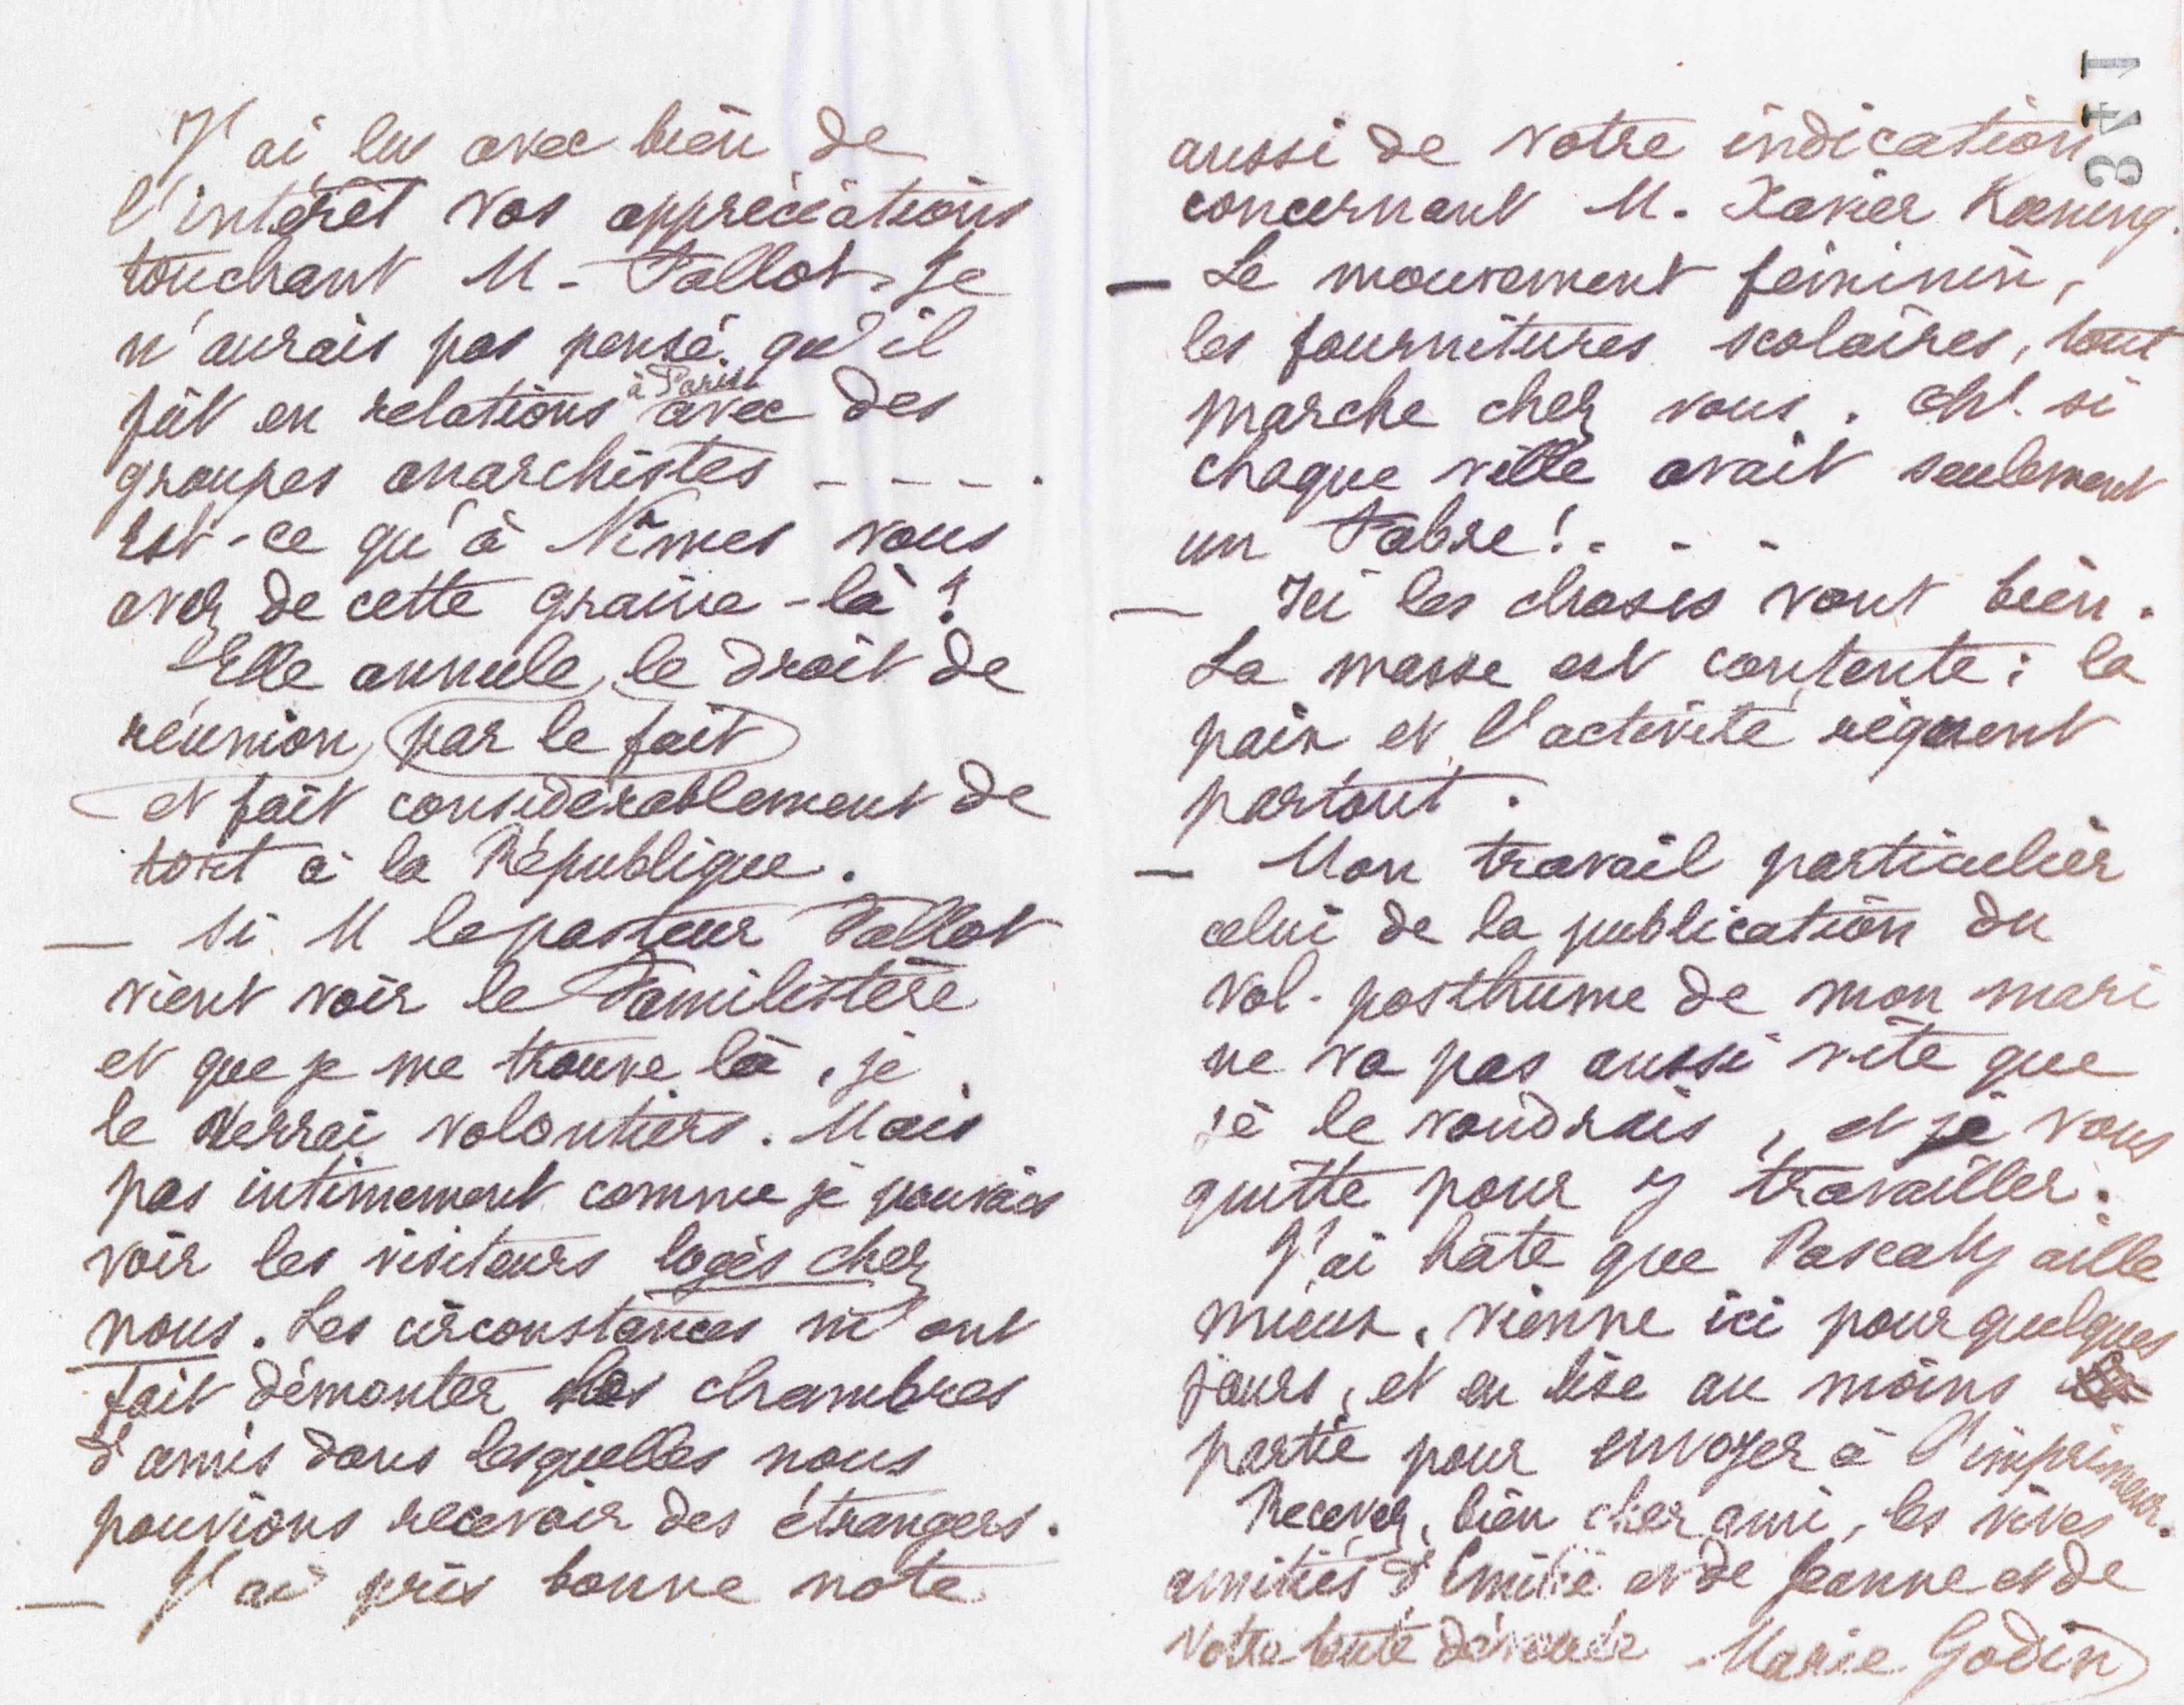 J'ai lu avec bien de
l'intérêt vos appréciations
touchant M. Fallot. Je
n'aurais pas pensé qu'il
fût en relations à Paris avec des
groupes anarchistes - - - .
Est-ce qu'à Nîmes vous
avez de cette graine-là ?
Elle annule, le droit de
réunion, par le fait
et fait considérablement de
tort à la République.
— Si M le pasteur Fallot
vient voir le Familistère
et que je me trouve là, je
le verrai volontiers. Mais
pas intimement comme je pouvais
voir les visiteurs logés chez
nous. Les circonstances m'ont
fait démonter les chambres
d'amis dans lesquelles nous
pouvions recevoir des étrangers.
— J'ai pris bonne note
aussi de votre indication
concernant M. Xavier Kœning.
— Le mouvement féminin,
les fournitures scolaires, tout
marche chez vous. Ah! si
chaque ville avait seulement
un Fabre! - - -
— Ici les choses vont bien.
La masse est contente : la
paix et l'activité règnent
partout.
— Mon travail particulier
celui de la publication du
vol. posthume de mon mari
ne va pas aussi vite que
je le voudrais, et je vous
quitte pour y travailler.
J'ai hâte que Pascaly aille
mieux, vienne ici pour quelques
jours, et en lise au moins
partie pour envoyer à l'imprimeur.
Recevez, bien cher ami, les vives
amitiés d'Emilie et de Jeanne et de
Votre toute dévouée Marie Godin